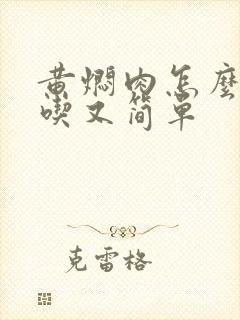 黄焖肉怎麽
喫又简单
克雷格